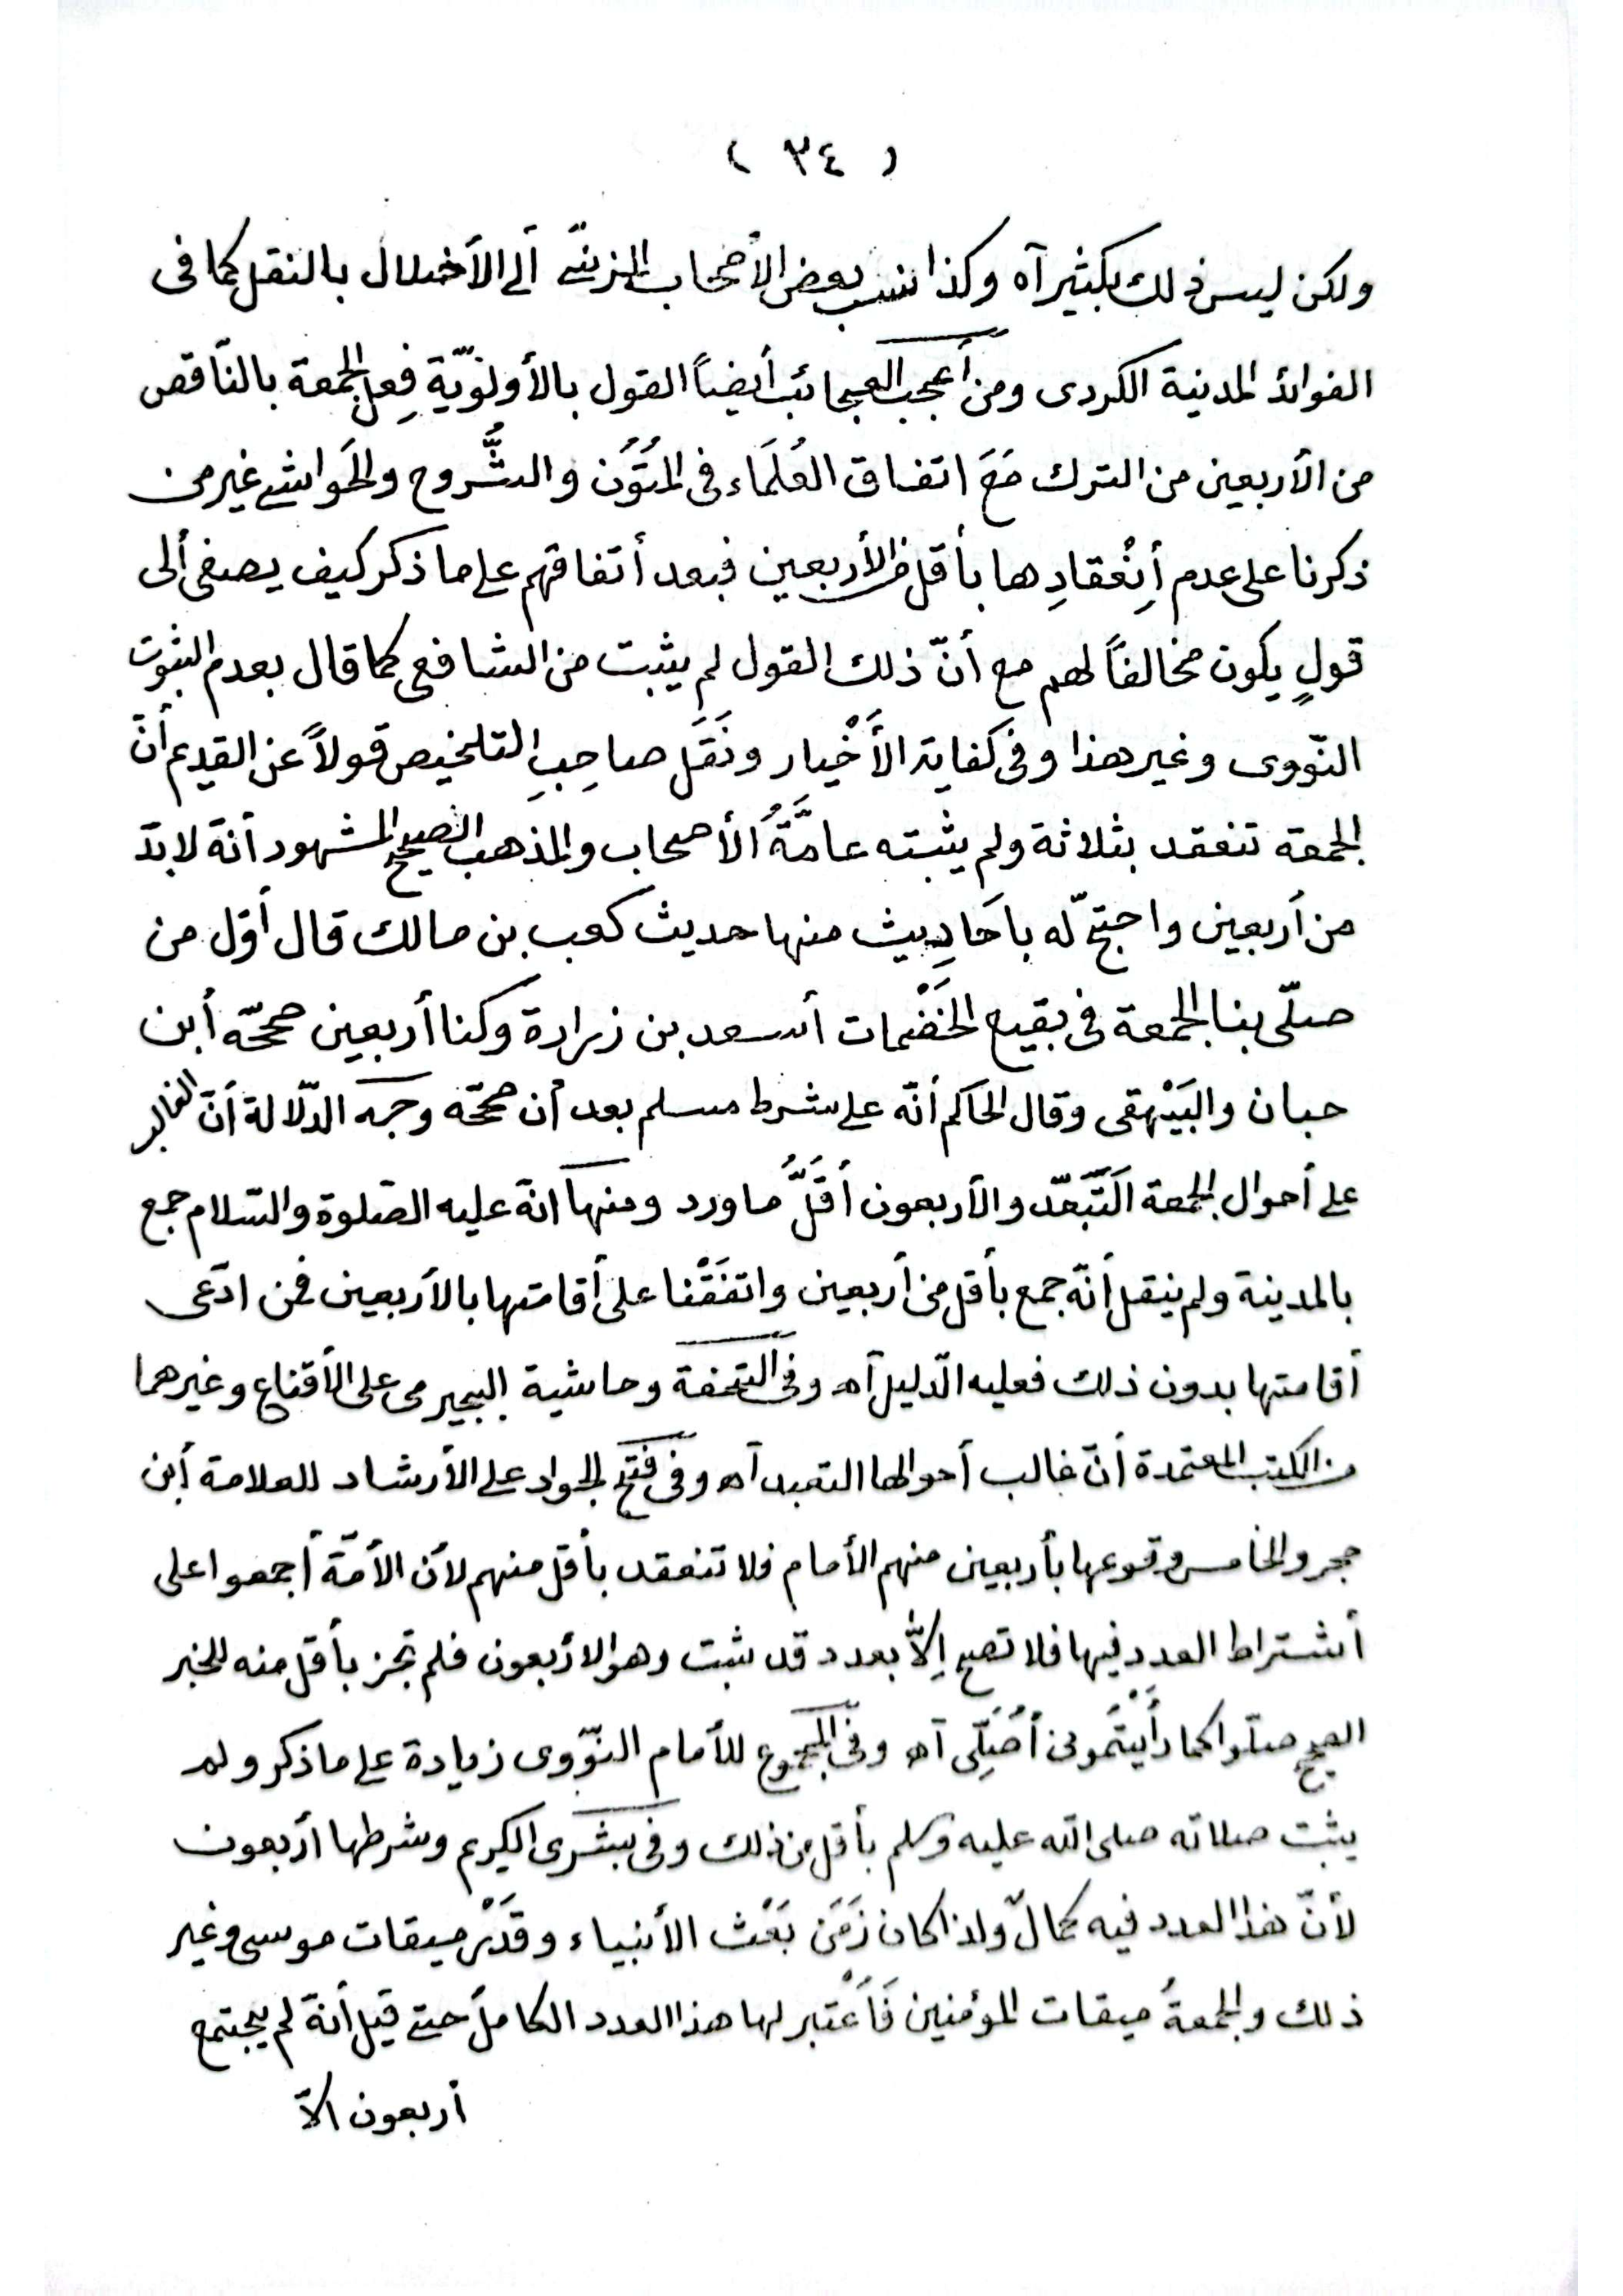 ( ٣٤ )
ولكن ليس ذلك بكثير آه وكذا نسب بعض الأصحاب المزنيّ ألى الأخلال بالنقل كما فى
الفوائد المدنية الكردى ومن أعجب العجائب أيضاً القول بالأولويّة فِعل الجمعة بالنّاقص
من الأربعين من الترك مَعَ اتفاق العُلَمَاء فى المُتُون والشُّروح والحَواشى غير من
ذكرنا على عدم أِنْعقادِها بأقل من الأربعين فبعد أتفاقهم على ما ذكر كيف يصغى ألى
قولٍ يكون مخالفاً لهم مع أنّ ذلك القول لم يثبت من الشافعى كما قال بعدم الثبوت
النّووى وغير هذا وفى كفاية الأَخْيار ونَقَلَ صاحِبِ التلخيص قولاً عن القديم أنّ
الجمعة تنعقد بثلاثة ولم يثبته عامَّةُ الأصحاب والمذهب الصحيح المشهور أنّه لابدّ
من أربعين واحتجّ له باَحَادِيث منها حديث كعب بن مالك قال أوّل من
صلّى بنا الجمعة فى بقيع الخَضْمات أسعد بن زرارة وكنا أربعين صحّحه أبن
حبان والبَيْهقى وقال الحاكم أنّه على شرط مسلم بعد أن صحّحه وجه الدّلالة أنّ الغالب
على أحوال الجمعة اَلتَّعَبّد والأربعون أقَلَّ ما ورد ومنها انّه عليه الصّلوة والسّلام جمع
بالمدينة ولم ينقل أنّه جمع بأقل من أربعين واتفَقْنا على أقامتها بالأربعين فمن ادّعى
أقامتها بدون ذلك فعليه الدّليل آه وفى التحفة وحاشية البجيرمى على الأقناع وغيرهما
من الكتب المعتمدة أنّ غالب أحوالها التعبد آه وفى فتح الجواد على الأرشاد للعلامة أبن
حجر والخامس وقوعها بأربعين منهم الأمام فلا تنعقد بأقل منهم لأن الأمّة أجمعوا على
أشتراط العدد فيها فلا تصح اِلاّ بعدد قد ثبت وهو الأربعون فلم تجز بأقل منه للخبر
الصحيح صلّوا كما رأَيْتَمونى أُصَلِّى آه وفى المجموع للأمام النوّوى زيادة على ما ذكر ولم
يثبت صلاته صلى الله عليه وسلم بأقل من ذلك وفى بشرى الكريم وشرطها أربعون
لأنّ هذا العدد فيه كمالٌ ولذا كان زَمَنَ بَعْث الأنبياء وقَدَرْ ميقات موسى وغير
ذلك والجمعةُ ميقات المؤمنين فَاَعْتبر لها هذا العدد الكامل حتى قيل أنّه لم يجتمع
أربعون الاّ